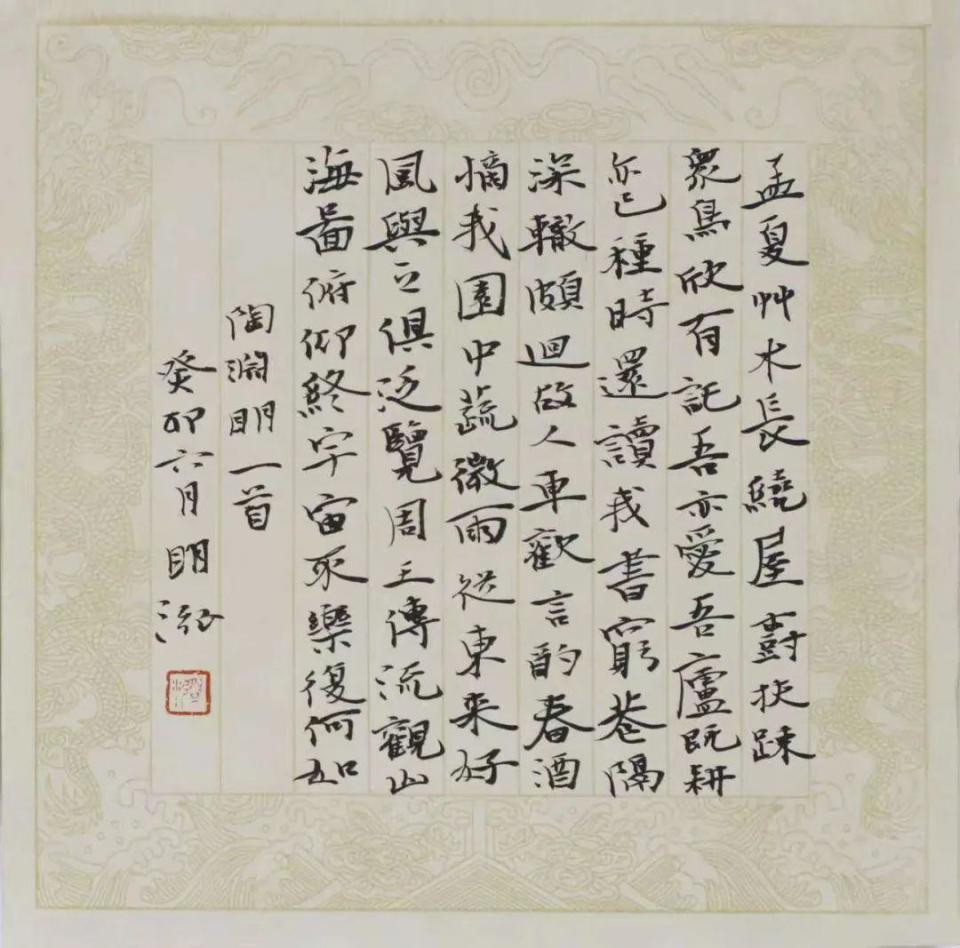 孟夏艸木長繞屋樹扶疎
眾鳥欣有託吾亦愛吾廬既耕
亦已種時還讀我書窮巷隔
深轍頗迴故人車歡言酌春酒
摘我園中蔬微雨從東来好
風與之俱泛覽周王傳流觀山
海圖俯仰終宇宙不樂復何如
陶淵明一首
癸卯六月明